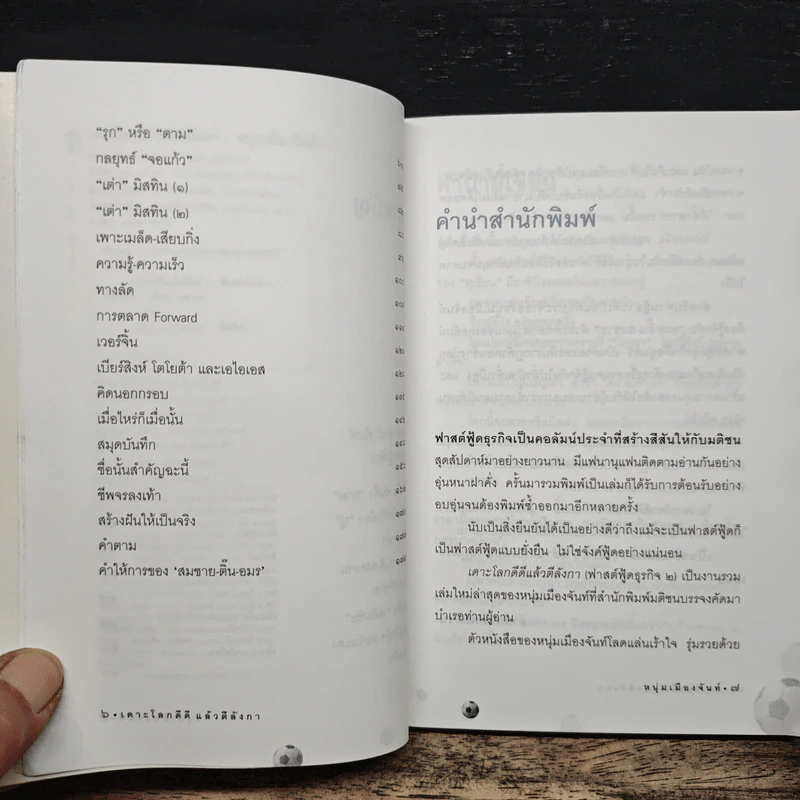 "รุก" หรือ "ตาม"
กลยุทธ์ "จอแก้ว"
"เต่า" มิสทิน (๑)
"เต่า" มิสทิน (๒)
เพาะเมล็ด-เสียบกิ่ง
ความรู้-ความเร็ว
ทางลัด
การตลาด Forward
เวอร์จิ้น
เบียร์สิงห์ โตโยต้า และเอไอเอส
คิดนอกกรอบ
เมื่อไหร่ก็เมื่อนั้น
สมุดบันทึก
ชื่อนั้นสำคัญฉะนี้
ชีพจรลงเท้า
สร้างฝันให้เป็นจริง
คำตาม
คำให้การของ 'สมชาย-ติ๊น-อมร'
๖ • เดาะโลกดีดี แล้วตีลังกา
คำนำสำนักพิมพ์
ฟาสต์ฟู้ดธุรกิจเป็นคอลัมน์ประจำที่สร้างสีสันให้กับมติชน
สุดสัปดาห์มาอย่างยาวนาน มีแฟนานุแฟนติดตามอ่านกันอย่าง
อุ่นหนาฝาคั่ง ครั้นมารวมพิมพ์เป็นเล่มก็ได้รับการต้อนรับอย่าง
อบอุ่นจนต้องพิมพ์ซ้ำออกมาอีกหลายครั้ง
นับเป็นสิ่งยืนยันได้เป็นอย่างดีว่าถึงแม้จะเป็นฟาสต์ฟู้ดก็
เป็นฟาสต์ฟู้ดแบบยั่งยืน ไม่ใช่จังค์ฟู้ดอย่างแน่นอน
เดาะโลกดีดีแล้วตีลังกา (ฟาสต์ฟู้ดธุรกิจ ๒) เป็นงานรวม
เล่มใหม่ล่าสุดของหนุ่มเมืองจันท์ที่สำนักพิมพ์มติชนบรรจงคัดมา
บำเรอท่านผู้อ่าน
ตัวหนังสือของหนุ่มเมืองจันท์โลดแล่นเร้าใจ รุ่มรวยด้วย
หนุ่มเมืองจันท์ • ๗